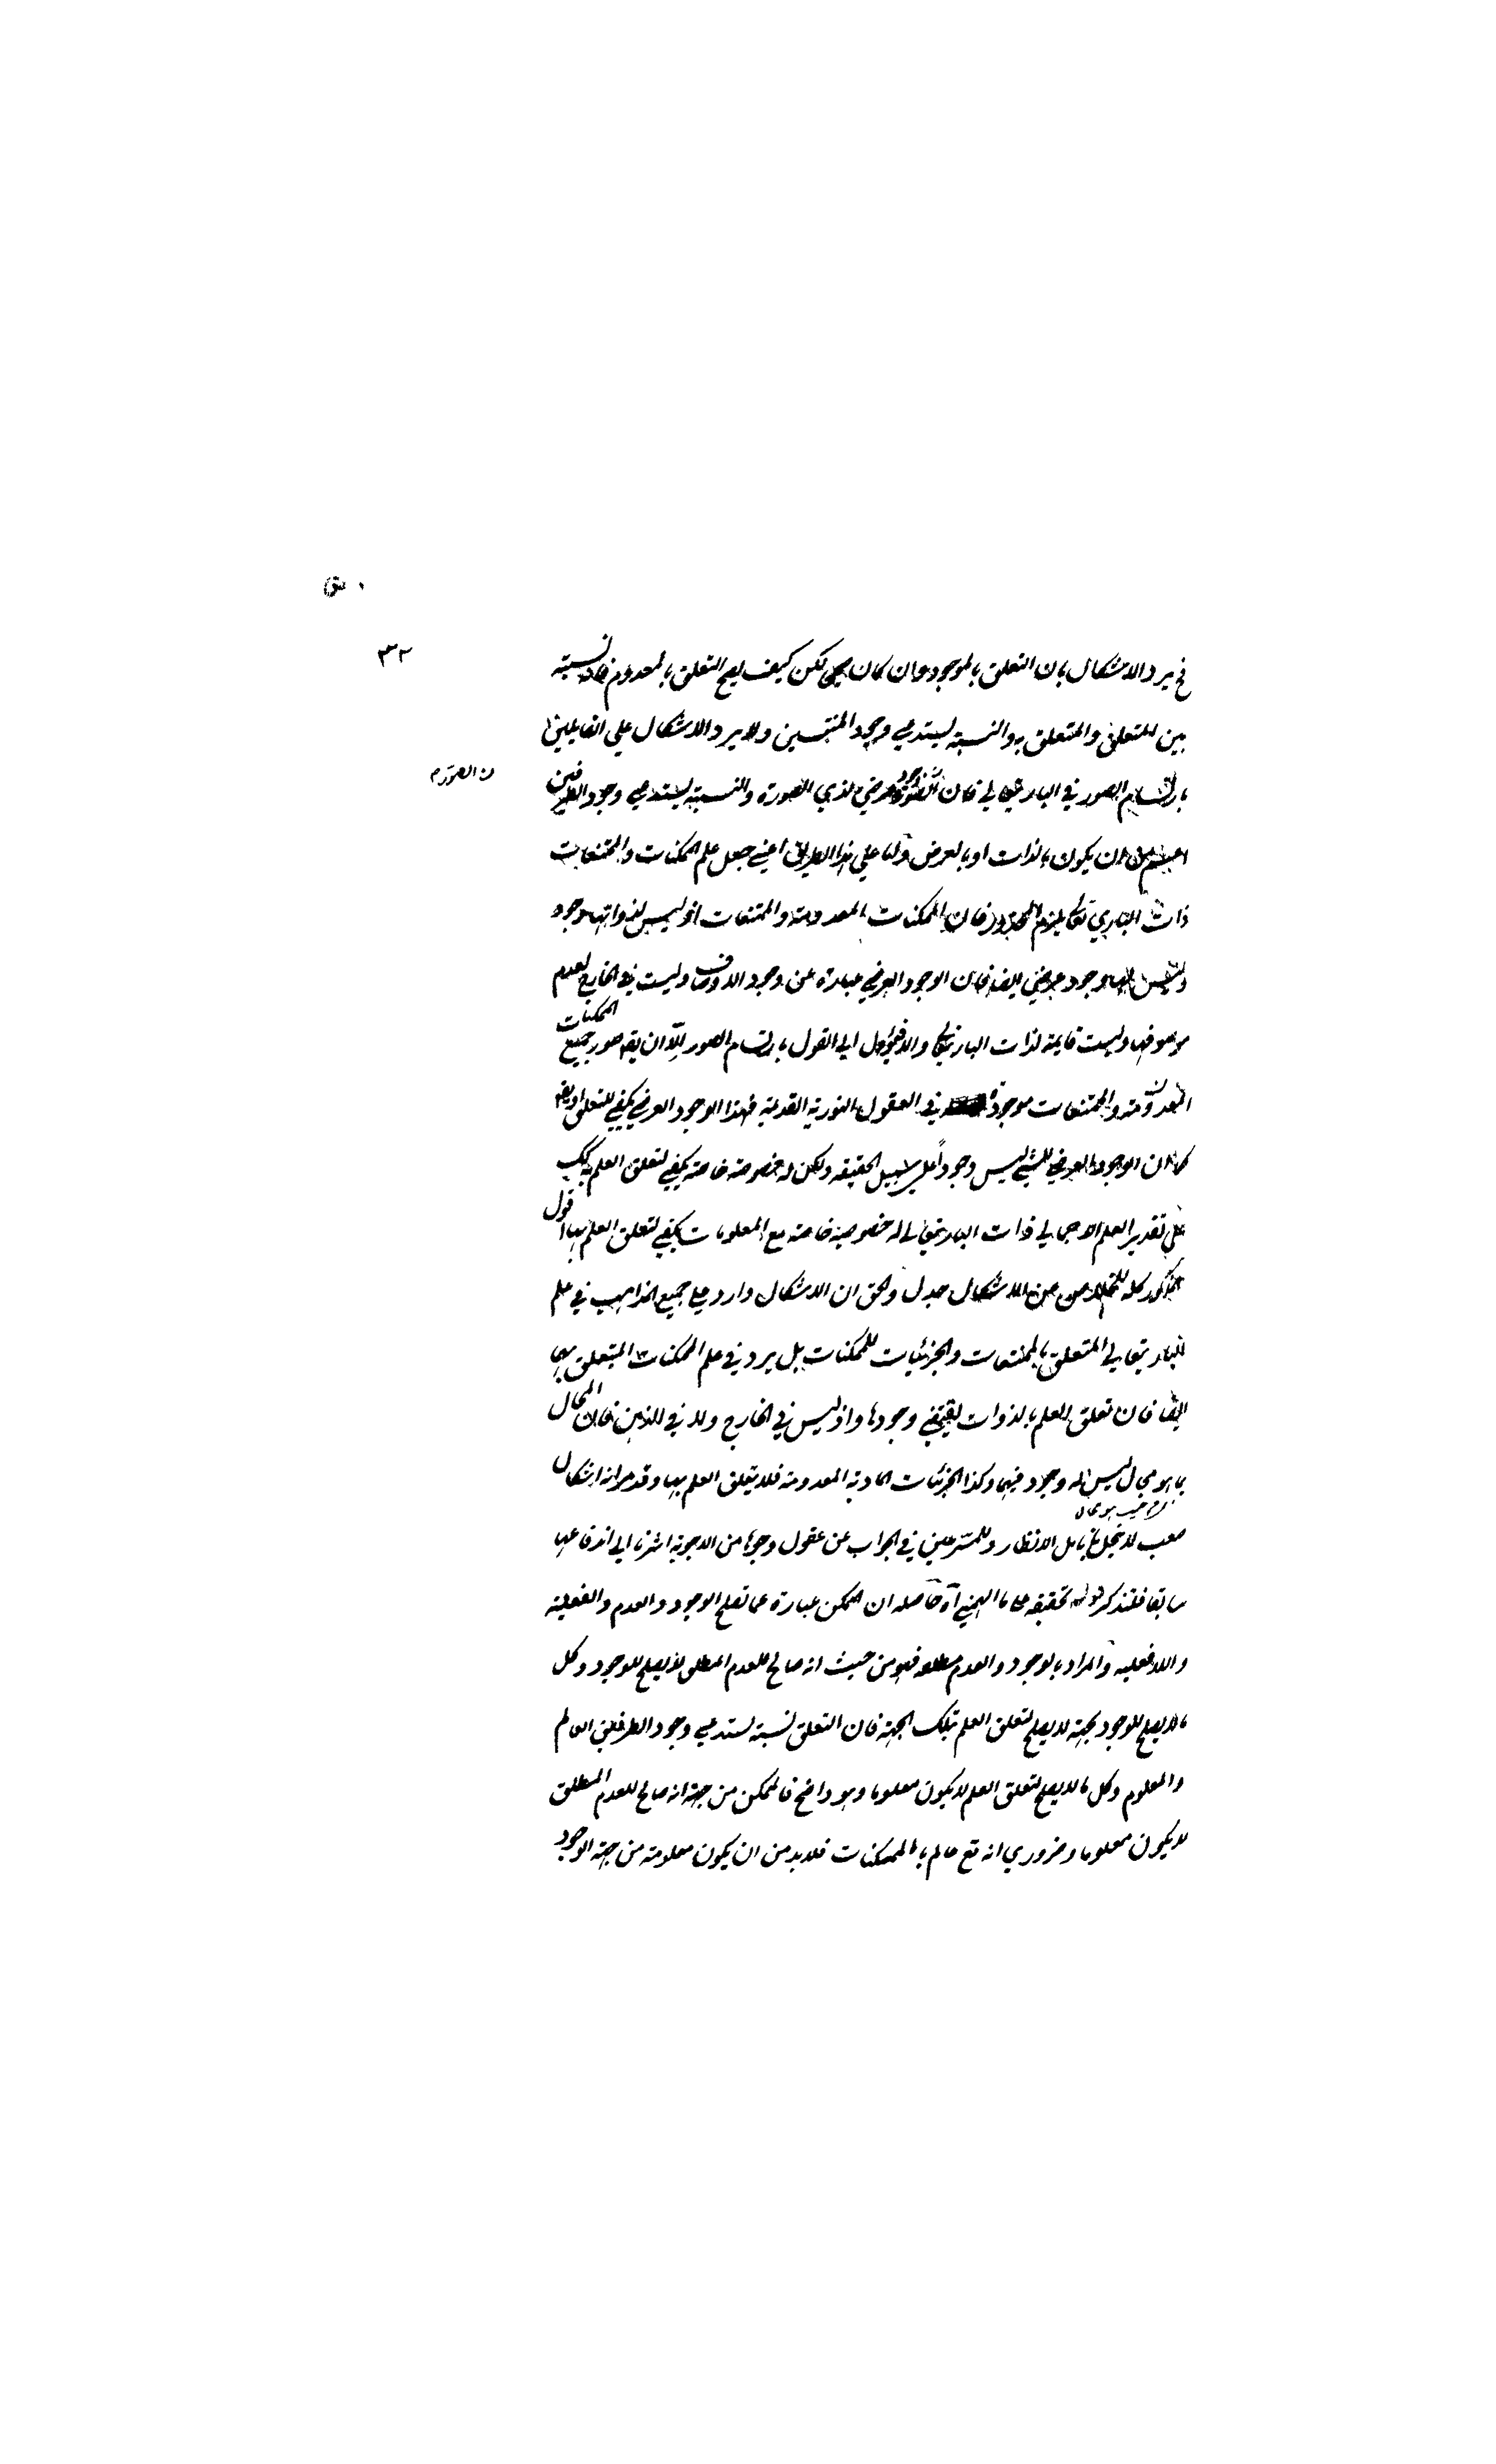 ٣٢
فح يرد الاشكال بان التعلق بالموجود وان كان يصح لكن كيف يصح التعلق بالمعدوم فانه نسبة
بين المتعلق والمتعلق به والنسبة يستدعي وجود المنتسبين ولا يرد الاشكال علي القايلين
ن الصورة م
بارتسام الصور في الباري تعالي فان الصورة وجود عرضي لذي الصورة والنسبة يستدعي وجود الطرفين
اعم من ان يكون بالذات او بالعرض واما علي هذا الطريق اعني جعل علم الممكنات والممتنعات
ذات الباري تعالي يلزم المحذور فان الممكنات المعدومة والممتنعات اذ ليس لذواتها وجود
وليس لها وجود عرضي ايضا فان الوجود العرضي عبارة عن وجود الاوصاف وليست في الخارج لعدم
موصوفها وليست قايمة لذات الباري تعالي والا فيؤول الي القول بارتسام الصور اللهم الا ان يقم صور جميع الممكنات
المعدومة والممتنعات موجودة في العقول النورية القديمة فهذا الوجود العرضي يكفي للتعلق او يقم
كما ان الوجود العرضي للشي ليس وجودا علي سبيل الحقيقة ولكن له خصوصة خاصة يكفي لتعلق العلم به كك
علي تقدير العلم الاجمالي ذات الباري تعالي له خصوصية خاصة مع المعلومات يكفي لتعلق العلم بها اقول
المذكور كله للتخلص من الاشكال جدل والحق ان الاشكال وارد علي جميع المذاهب في علم
الباري تعالي المتعلق بالممتنعات والجزئيات للممكنات بل يرد في علم الممكنات المتعلق بها
ايضا فان تعلق العلم بالذوات يقتضي وجودها واذ ليس في الخارج ولا في الذهن فان المحال
بما هو محال ليس له وجود فيهما وكذا الجزئيات المادية المعدومة فلا يتعلق العلم بها وقد مر انه اشكال
من حيث هو محال
صعب لا ينحل بتامل الانظار وللمتشرعين في الجواب عن عقول وجوها من الاجوبة اشرنا الي اندفاعها
سابقا فتذكر قوله تحقيقه علي ما الهمني آه حاصله ان الممكن عبارة عما تصلح الوجود والعدم والفعلية
واللا فعلية والمراد بالوجود والعدم مطلقه فهو من حيث انه صالح للعدم المطلق لا يصلح للوجود وكل
ما لا يصلح للوجود بجهة لا يصلح لتعلق العلم بتلك الجهة فان التعلق نسبة يستدعي وجود الطرفين العالم
والمعلوم وكل ما لا يصلح لتعلق العلم لا يكون معلوما وهو واضح فالممكن من جهة انه صالح للعدم المطلق
لا يكون معلوما وضروري انه تع عالم بالممكنات فلا بد من ان يكون معلومة من جهة الوجود